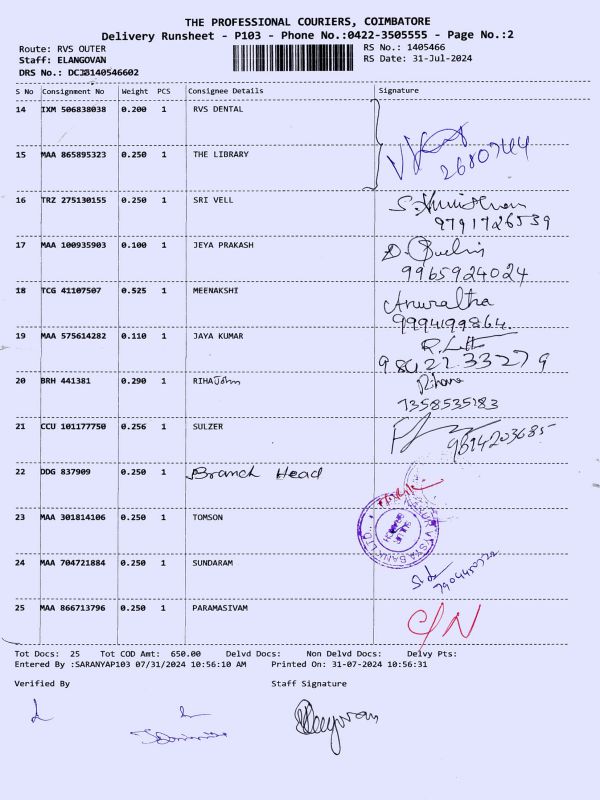 THE PROFESSIONAL COURIERS, COIMBATORE
Delivery Runsheet - P103 - Phone No.:0422-3505555 - Page No.:2
Route: RVS OUTER
RS No.: 1405466
Staff: ELANGOVAN
RS Date: 31-Jul-2024
DRS No.: DCJB140546602
S No Consignment No Weight PCS Consignee Details Signature
14 IXM 506838038 0.200 1 RVS DENTAL
2680744
15 MAA 865895323 0.250 1 THE LIBRARY
16 TRZ 275130155 0.250 1 SRI VELL
9791726539
17 MAA 100935903 0.100 1 JEYA PRAKASH
9965924024
18 TCG 41107507 0.525 1 MEENAKSHI Anuratha
9994199864.
19 MAA 575614282 0.110 1 JAYA KUMAR
20 BRH 441381 0.290 1 RIHA John Rihana
7358535183
21 CCU 101177750 0.256 1 SULZER
9894203685
22 DDG 837909 0.250 1 Branch Head
23 MAA 301814106 0.250 1 TOMSON
VYSYA BANK LTD.
24 MAA 704721884 0.250 1 SUNDARAM
25 MAA 866713796 0.250 1 PARAMASIVAM C/N
Tot Docs: 25 Tot COD Amt: 650.00 Delvd Docs: Non Delvd Docs: Delvy Pts:
Entered By :SARANYAP103 07/31/2024 10:56:10 AM Printed On: 31-07-2024 10:56:31
Verified By Staff Signature